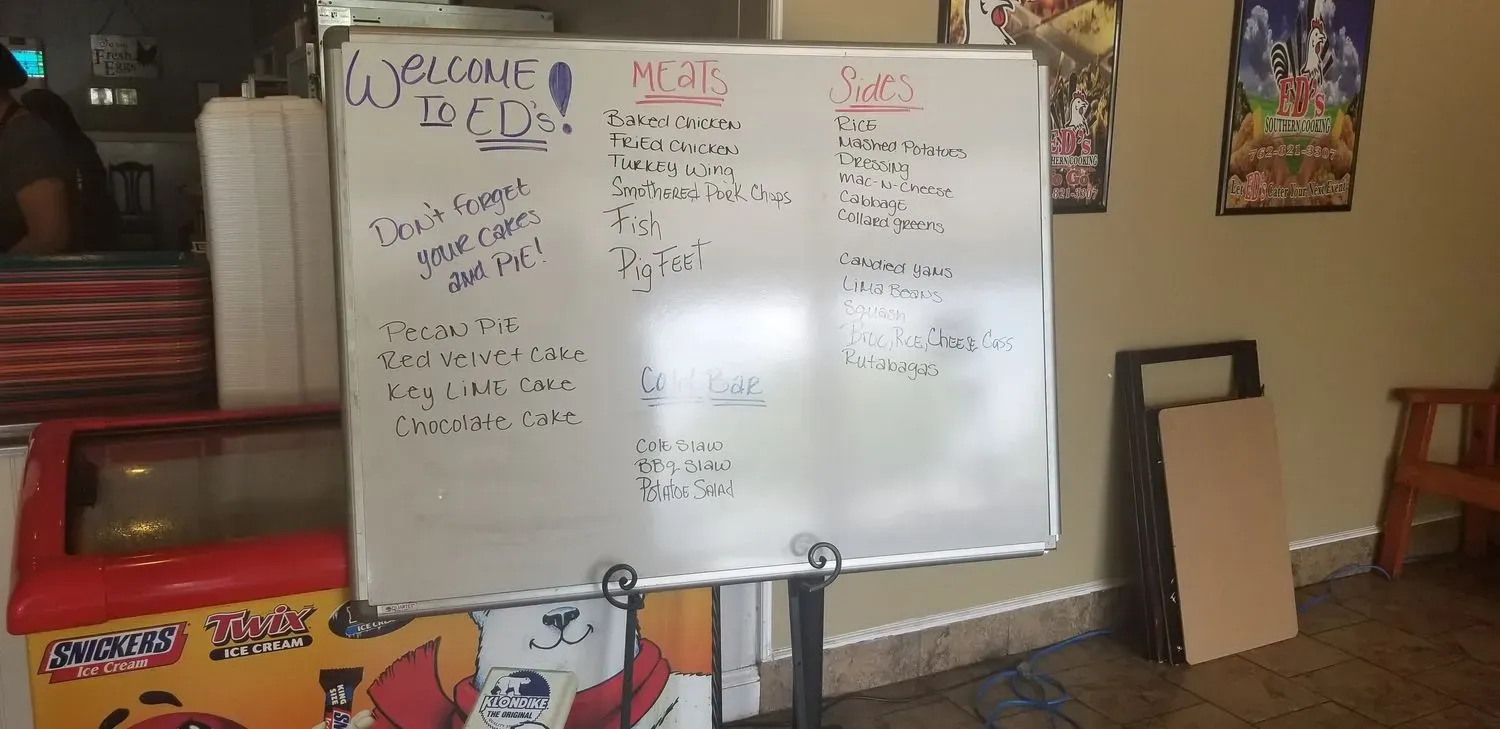 WELCOME
TO ED's!
DON'T FORGET
YOUR CAKES
AND PIE!
PECAN PIE
Red Velvet Cake
Key LIME Cake
Chocolate Cake
MEATS
BAKED CHICKEN
FRIED CHICKEN
TURKEY Wing
Smothered Pork Chops
Fish
Pig FEET
Cold Bar
Cole Slaw
BBq Slaw
Potatoe Salad
Sides
RICE
Mashed Potatoes
Dressing
Mac-N-Cheese
Cabbage
Collard greens
Candied yams
LIMA BEANS
Squash
BROC, RCE, CHEESE Cass
Rutabagas
Fresh
Eggs
ED's
SOUTHERN COOKING
762-821-3307
Let ED's Cater Your Next Event!
ED's
HERN COOKING
821-3307
QUARTET
SNICKERS
Ice Cream
Twix
ICE CREAM
KING
SIZE
KLONDIKE
THE ORIGINAL